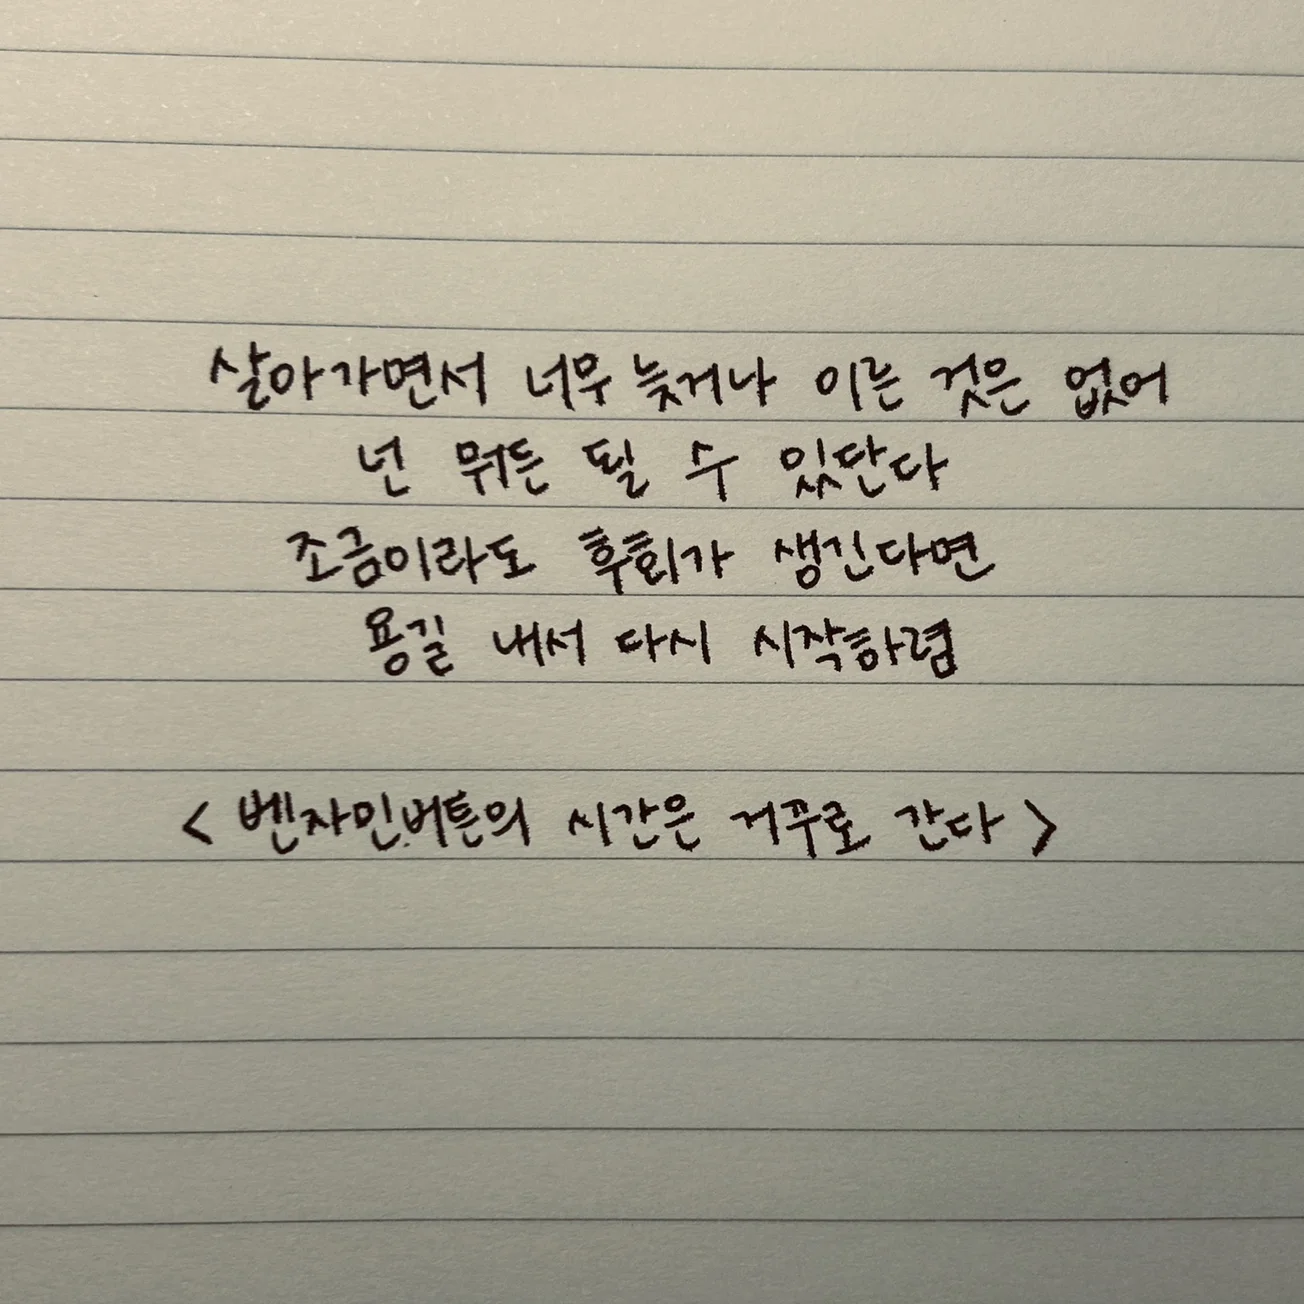 살아가면서 너무 늦거나 이른 것은 없어
넌 뭐든 될 수 있단다
조금이라도 후회가 생긴다면
용길 내서 다시 시작하렴
< 벤자민버튼의 시간은 거꾸로 간다 >